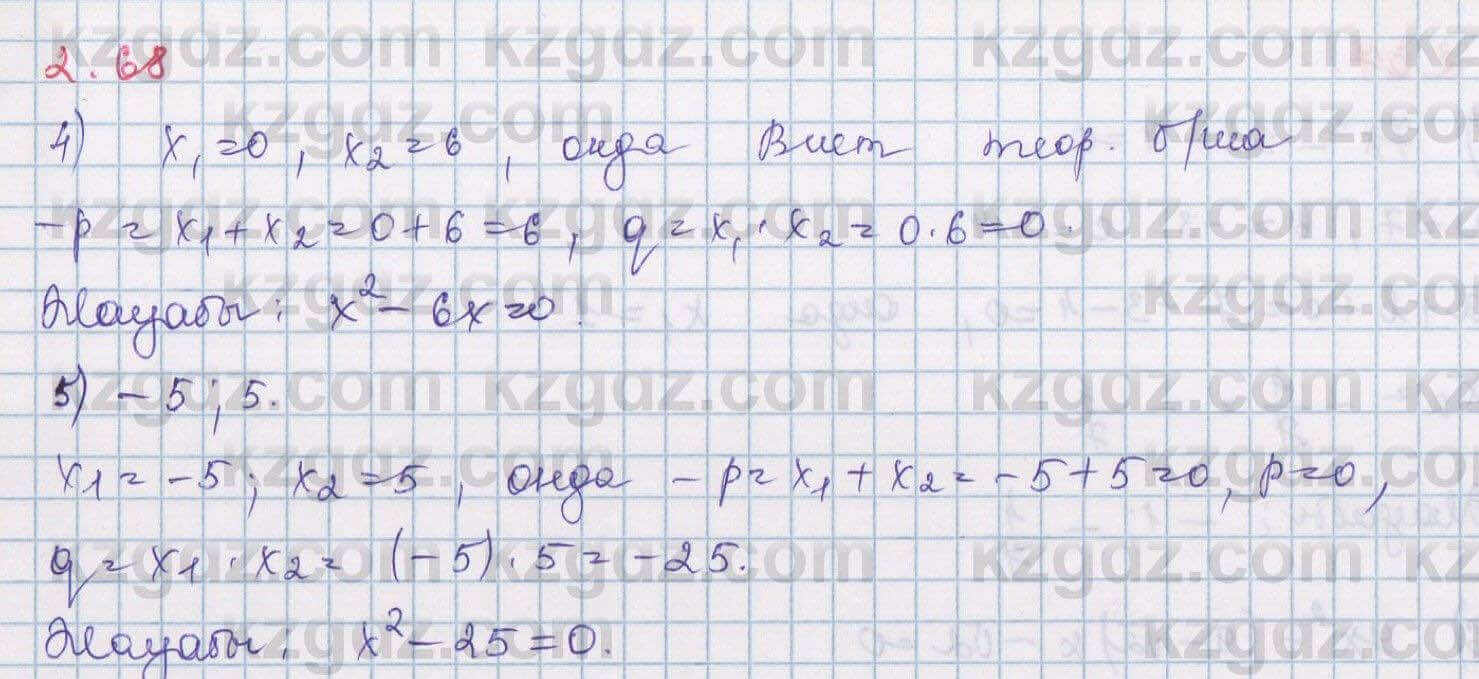 2.68
4) x₁=0, x₂=6, онда Виет теор. б/ша
-p=x₁+x₂=0+6=6, q=x₁·x₂=0·6=0.
Жауабы: x²-6x=0.
5) -5; 5.
x₁=-5; x₂=5, онда -p=x₁+x₂=-5+5=0, p=0,
q=x₁·x₂=(-5)·5=-25.
Жауабы: x²-25=0.
kzgdz.com